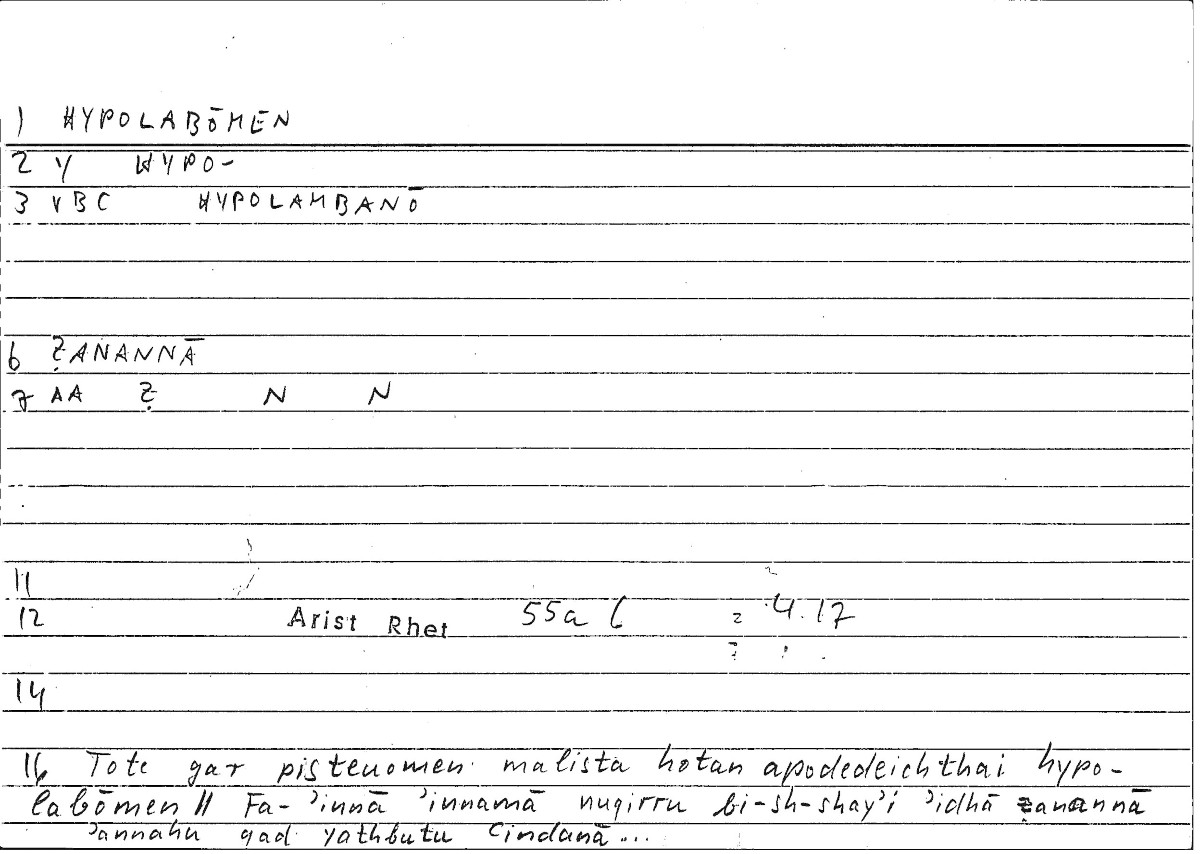 1 HYPOLABŌMEN
2 Y HYPO-
3 VBC HYPOLAMBANŌ
6 ẒANANNĀ
7 AA Ẓ N N
11
12 Arist Rhet 55a 6 = 4.17
14
16 Tote gar pisteuomen malista hotan apodedeichthai hypo-
labōmen // Fa-ʾinnā ʾinnamā nuqirru bi-sh-shayʾi ʾidhā ẓanannā
ʾannahu qad yathbutu ʿindanā...